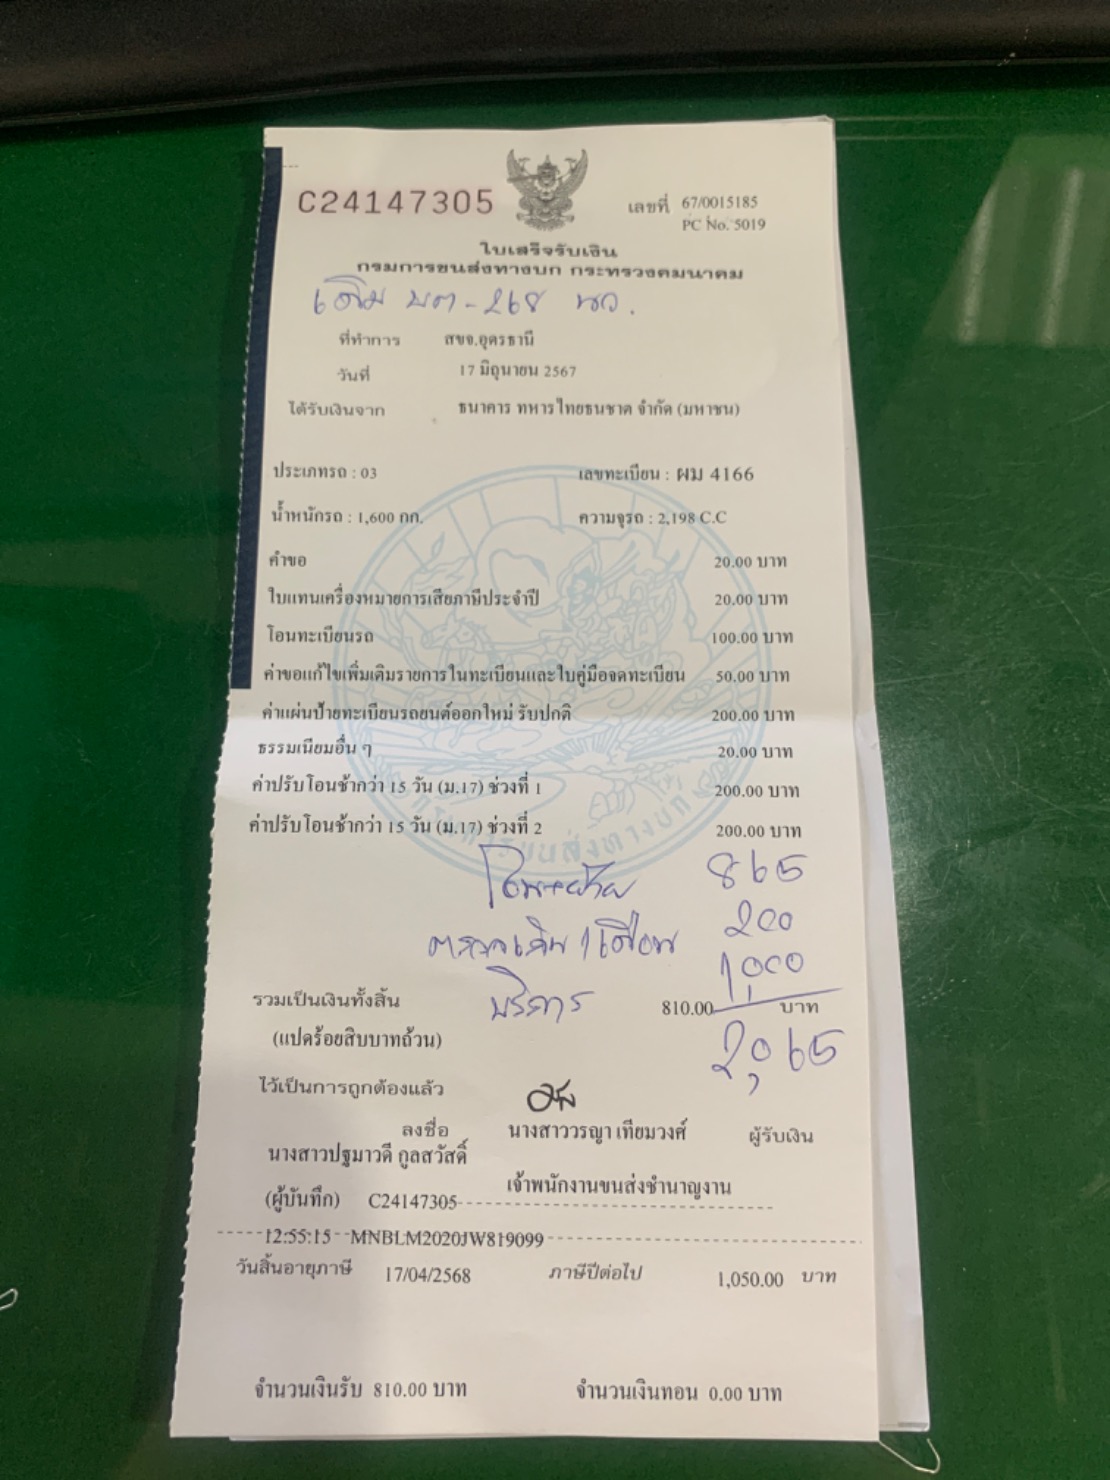 C24147305
เลขที่ 67/0015185
PC No. 5019
ใบเสร็จรับเงิน
กรมการขนส่งทางบก กระทรวงคมนาคม
เดิม บต-268 นว.
ที่ทำการ สขจ.อุดรธานี
วันที่ 17 มิถุนายน 2567
ได้รับเงินจาก ธนาคาร ทหารไทยธนชาต จำกัด (มหาชน)
ประเภทรถ : 03 เลขทะเบียน : ผม 4166
น้ำหนักรถ : 1,600 กก. ความจุรถ : 2,198 C.C
คำขอ 20.00 บาท
ใบแทนเครื่องหมายการเสียภาษีประจำปี 20.00 บาท
โอนทะเบียนรถ 100.00 บาท
ค่าขอแก้ไขเพิ่มเติมรายการในทะเบียนและใบคู่มือจดทะเบียน 50.00 บาท
ค่าแผ่นป้ายทะเบียนรถยนต์ออกใหม่ รับปกติ 200.00 บาท
ธรรมเนียมอื่น ๆ 20.00 บาท
ค่าปรับโอนช้ากว่า 15 วัน (ม.17) ช่วงที่ 1 200.00 บาท
ค่าปรับโอนช้ากว่า 15 วัน (ม.17) ช่วงที่ 2 200.00 บาท
กรมการขนส่งทางบก
โอน+ย้าย 865
ตรวจเกิน 1 เดือน 200
บริการ 1,000
รวมเป็นเงินทั้งสิ้น 810.00 บาท
(แปดร้อยสิบบาทถ้วน) 2,065
ไว้เป็นการถูกต้องแล้ว
ลงชื่อ นางสาววรญา เทียมวงศ์ ผู้รับเงิน
นางสาวปฐมาวดี กูลสวัสดิ์
เจ้าพนักงานขนส่งชำนาญงาน
(ผู้บันทึก) C24147305
12:55:15 MNBLM2020JW819099
วันสิ้นอายุภาษี 17/04/2568 ภาษีปีต่อไป 1,050.00 บาท
จำนวนเงินรับ 810.00 บาท จำนวนเงินทอน 0.00 บาท